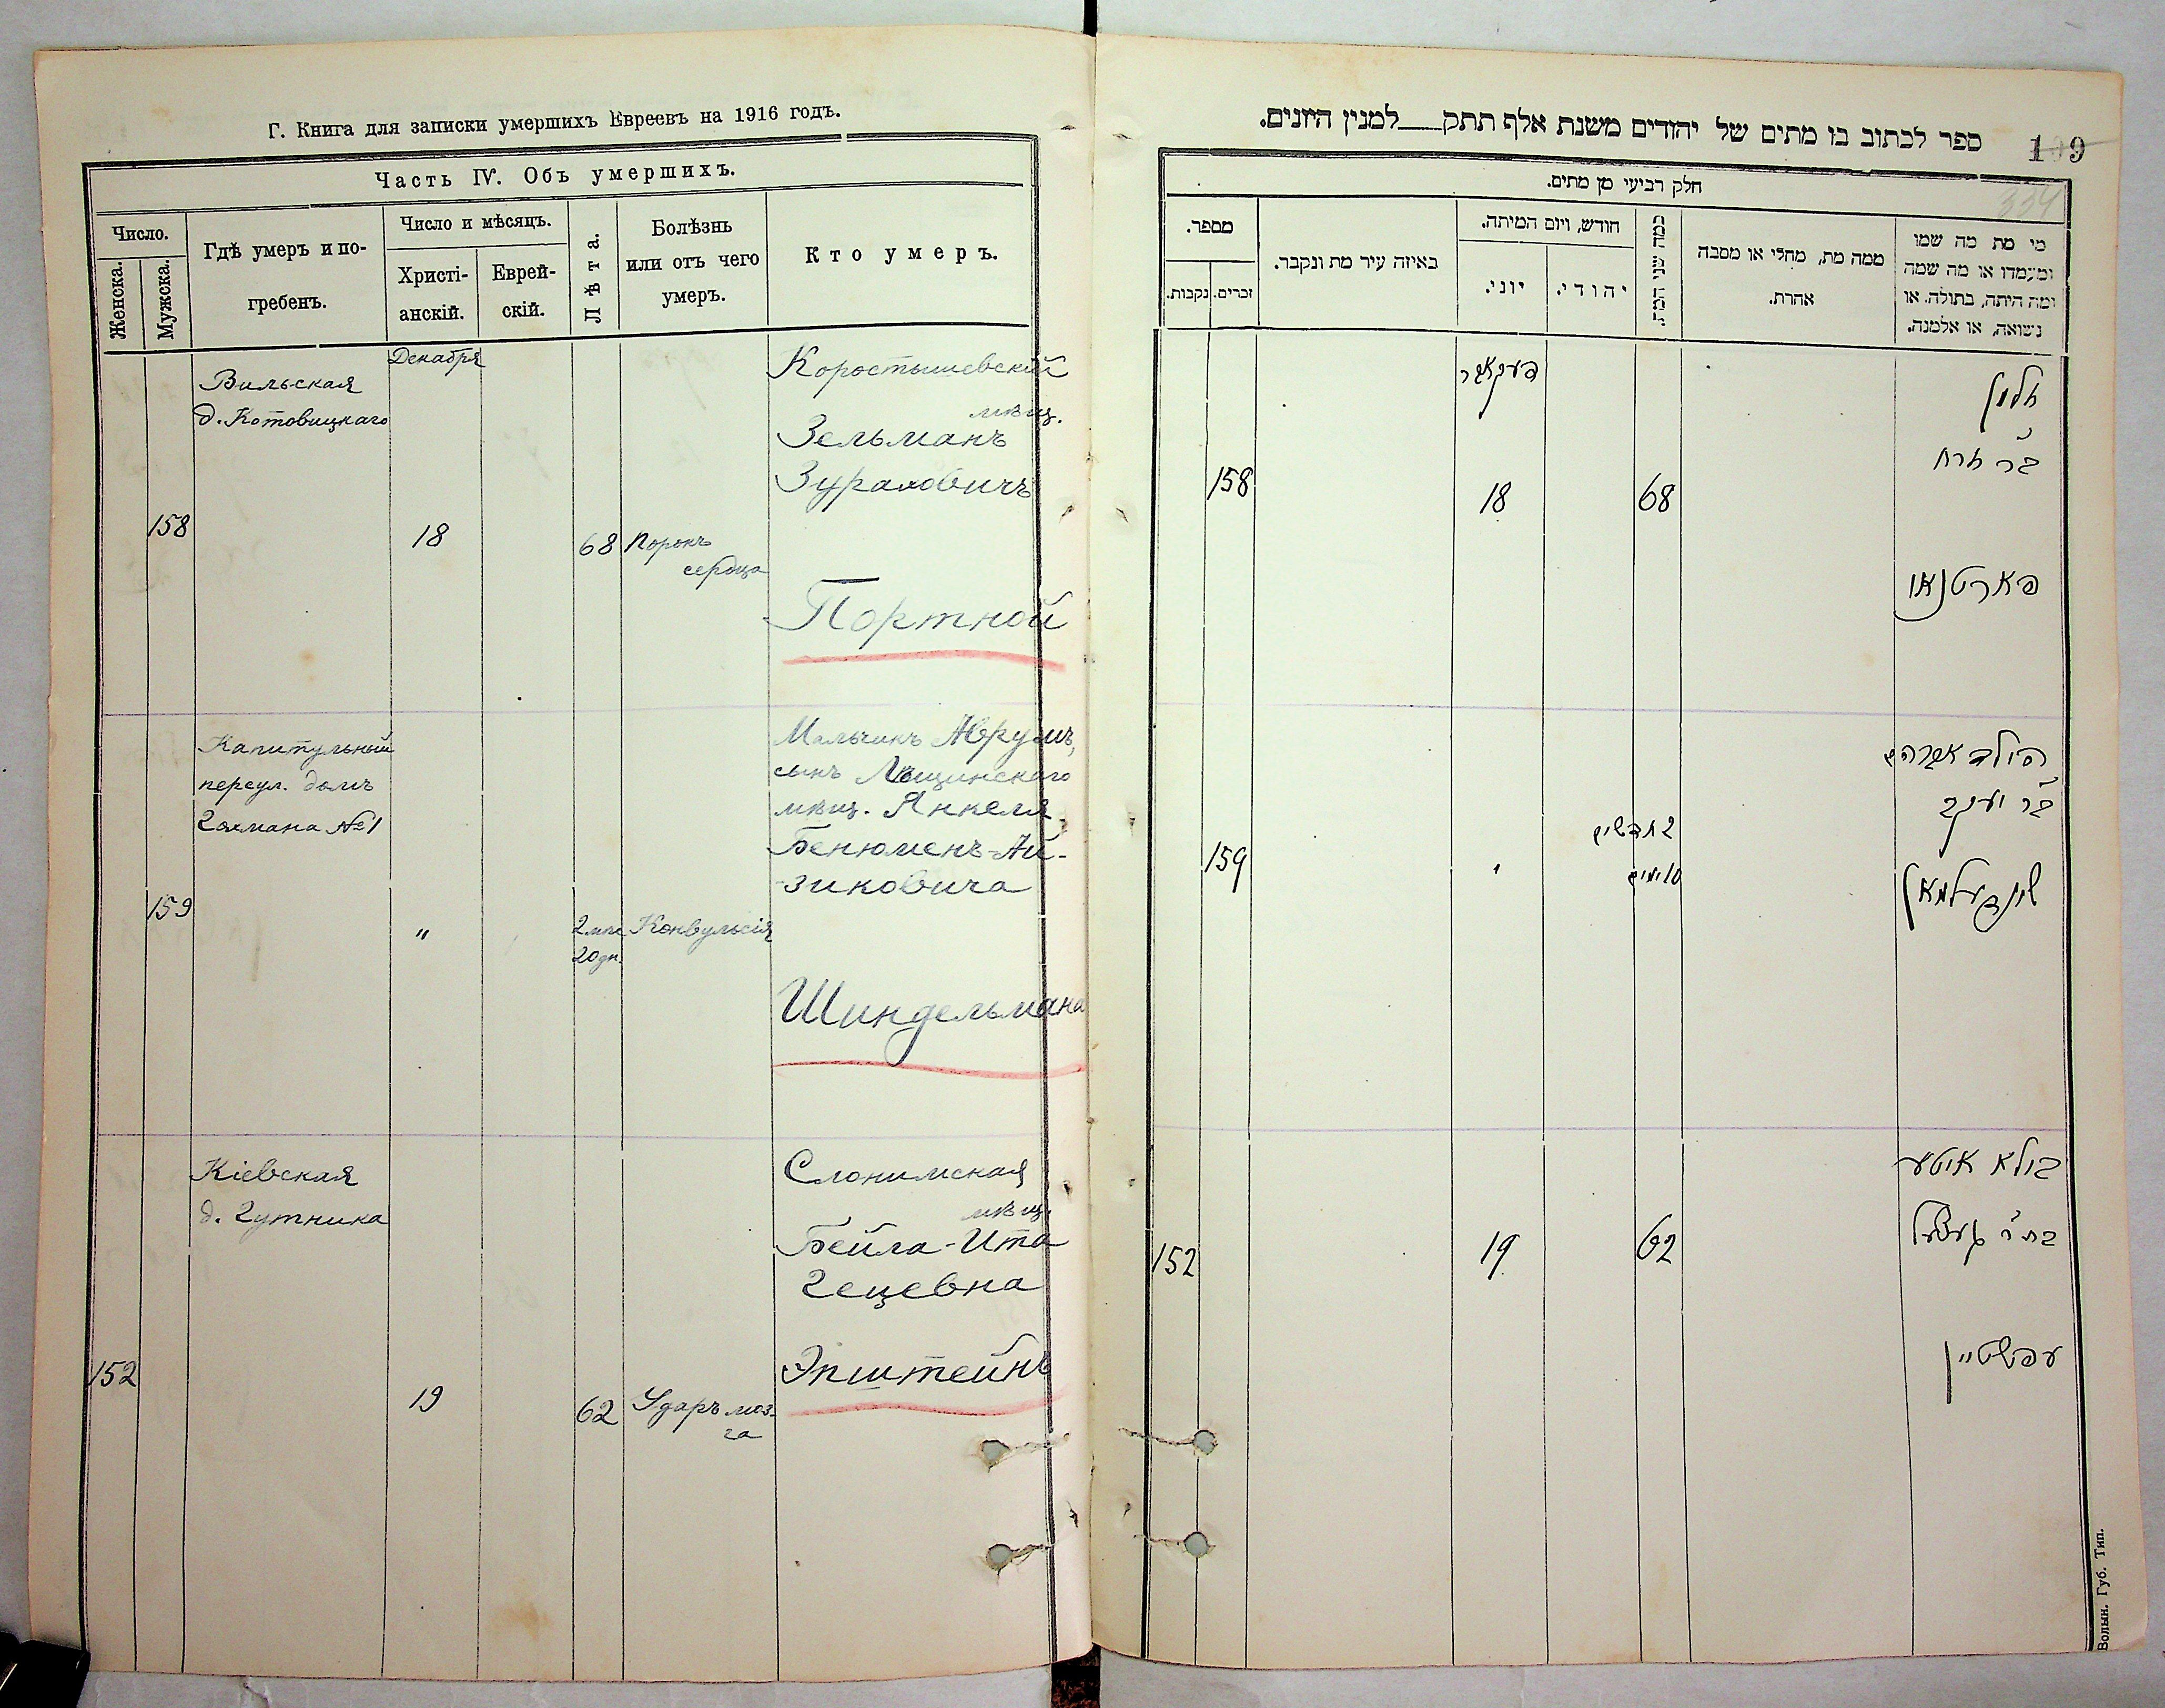 Г. Книга для записки умершихъ Евреевъ на 1916 годъ.
Часть IV. Объ умершихъ.
Число.
Женска.
Мужска.
Гдѣ умеръ и по-
гребенъ.
Число и мѣсяцъ.
Христі-
анскій.
Еврей-
скій.
Лѣта.
Болѣзнь
или отъ чего
умеръ.
Кто умеръ.
Декабря
Вильская
д. Котовицкаго
158
18
68
Порокъ
сердца
Коростышевскій
мѣщ.
Зельманъ
Зураховичъ
Портной
Капитульный
переул. домъ
№1
159
"
2 мѣс
20 дн.
Конвульсія
Мальчикъ Аврумъ,
сынъ Лещинскаго
мѣщ. Янкеля
Бенюменъ-Ай-
зиковича
Шиндельмана
Кіевская
д. Гутника
152
19
62
Ударъ моз-
га
Слонимская
мѣщ.
Бейла-Ита
Гецевна
Эпштейнъ
ספר לכתוב בו מתים של יהודים משנת אלף תתק___למנין היונים.
109
334
חלק רביעי מן מתים.
מספר.
נקבות.
זכרים.
באיזה עיר מת ונקבר.
חודש, ויום המיתה.
יוני.
יהודי.
כמה שני המת.
ממה מת, מחלי או מסבה
אהרת.
מי מת מה שמו
ומעמדו או מה שמה
ומה היתה, בתולה, או
נשואה, או אלמנה.
דעקאבר
158
18
68
זלמן
ב"ר זרח
פארטנאי
159
"
2 חדשים
10 ימים
הילד אברהם
ב"ר יעקב
שינדעלמאן
152
19
62
ביילא איטע
בת ר' געצל
עפשטיין
Волын. Губ. Тип.